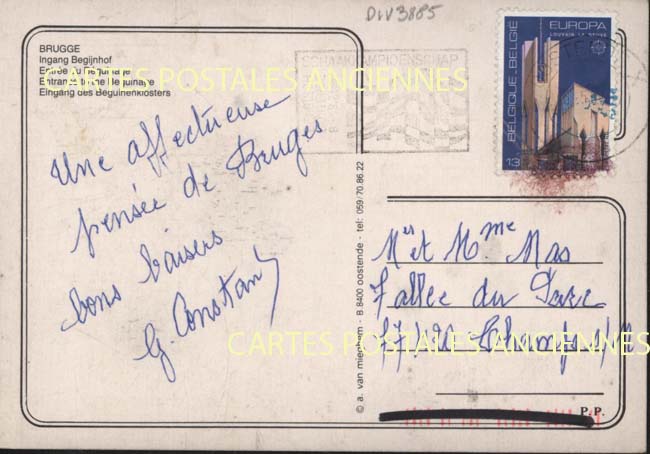 DIV3885
BRUGGE
Ingang Begijnhof
Entrée du Béguinage
Entrance to the Beguinage
Eingang des Beguinenklosters
CARTES POSTALES ANCIENNES
Une affectueuse
pensée de Bruges
bons baisers
G. Constant
© a. van mieghem - B.8400 oostende - tel: 059/70.86.22
BELGIQUE-BELGIË
EUROPA
LOUVAIN-LA-NEUVE
13
Mrs et Mme Mas
7 allée du Parc
CARTES POSTALES ANCIENNES
P.P.